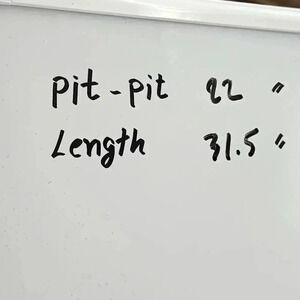 pit-pit 22 "
Length 31.5 "